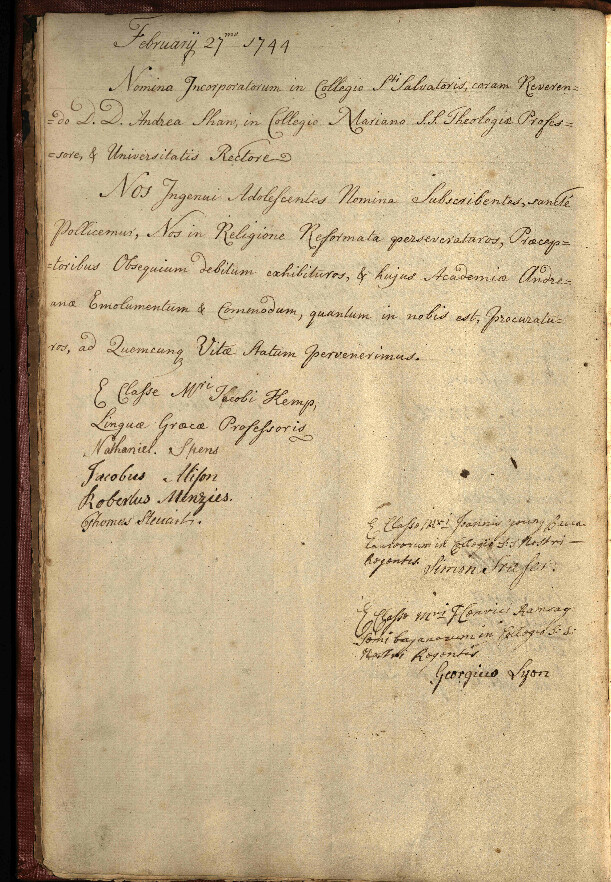 Februarij 27mo 1744
Nomina Incorporatorum in Collegio Sti Salvatoris, coram Reveren-
-do D. D. Andrea Shaw, in Collegio Mariano S.S. Theologiæ Profes-
-sore, & Universitatis Rectore
Nos Ingenui Adolescentes Nomina Subscribentes, sancté
Pollicemur, Nos in Religione Reformata perseveraturos, Præcep-
-toribus Obsequium debitum exhibituros, & hujus Academiæ Andre-
anæ Emolumentum & Comodum, quantum in nobis est, Procuratu-
ros, ad Quemcunq Vitæ Statum pervenerimus.
E Classe Mri Jacobi Kemp,
Linguæ Græcæ Professoris
Nathaniel. Spens
Jacobus Alison
Robertus Menzies.
Thomas Steuart.
E Classe Mri Joannis young
in Collegio S: S: Nostri
Regentis. Simon Fraser.
E Classe Mri Henrici Ramsay
Semibajanorum in Collegio S: S:
Nostri Regentis
Georgius Lyon